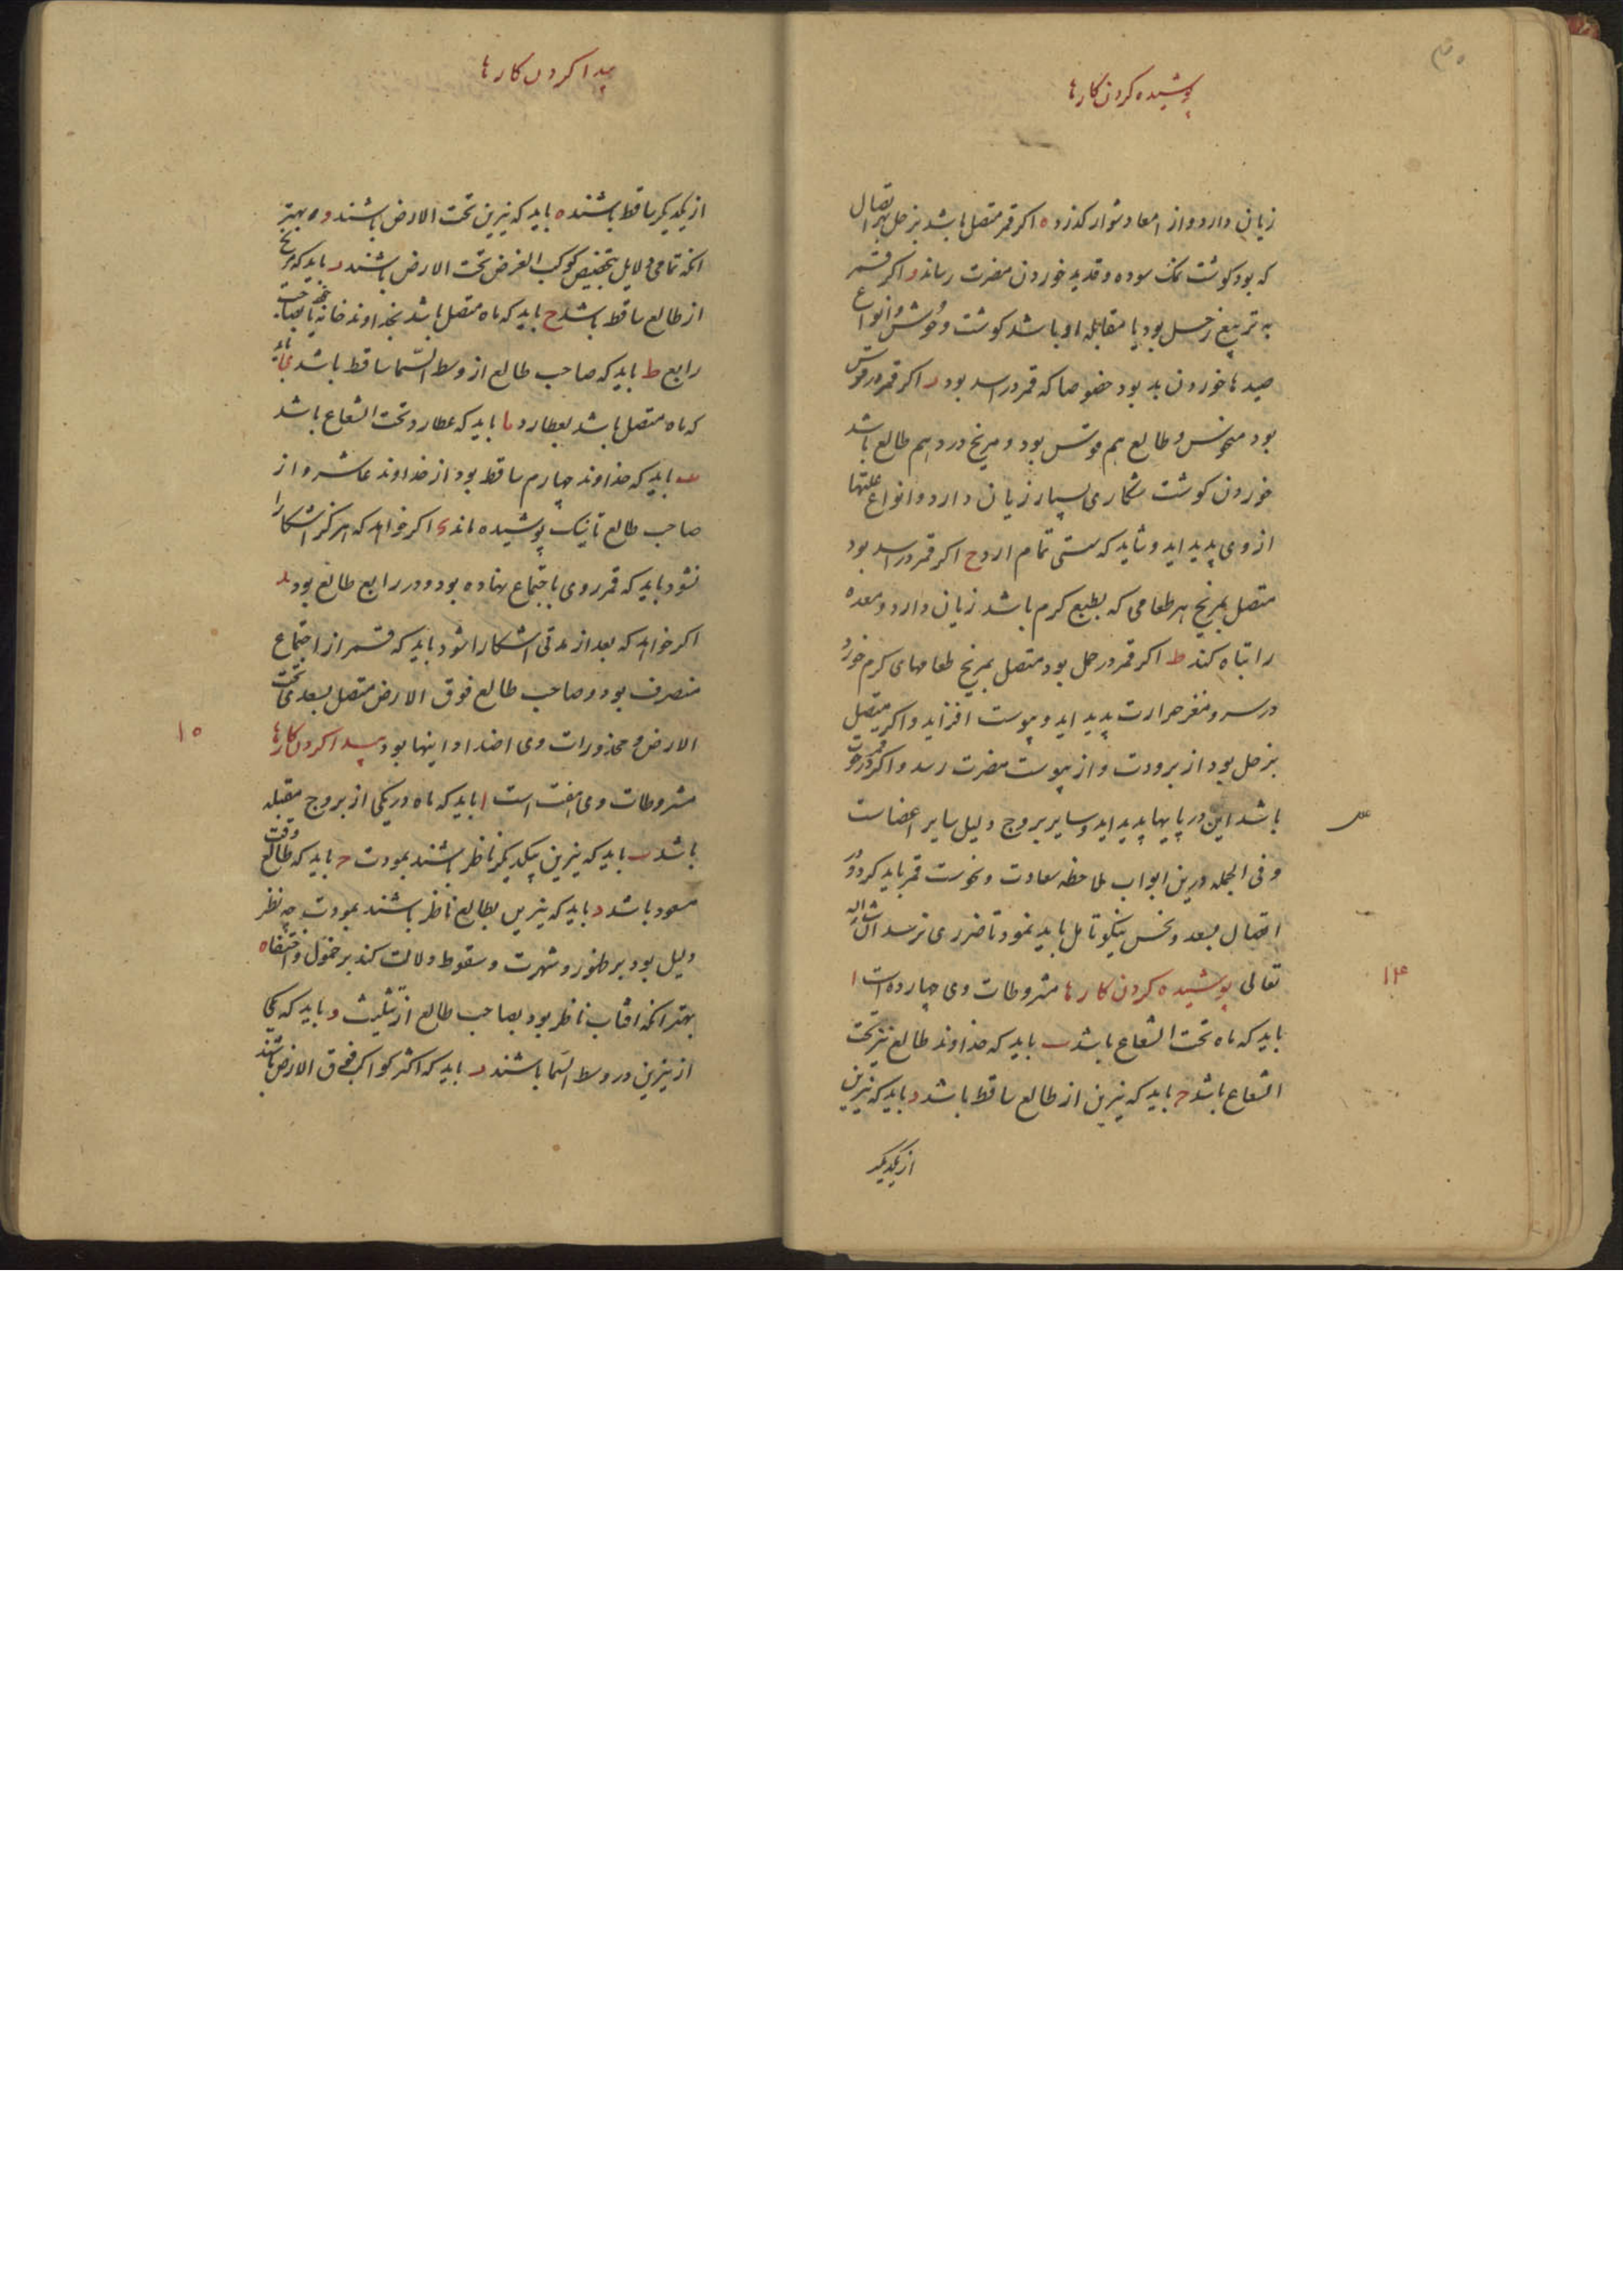 ۳۰
پوشیده کردن کارها
زیان دارد و از امعا دشوار کذرد ه اکر قمر متصل باشد بزحل بهر اتصال
که بود کوشت نمک سوده و قدید خوردن مضرت رساند و اکر قمر
به تربیع زحل بود یا مقابله او باشد کوشت وحوش و انواع
صیدها خوردن بد بود خصوصا که قمر در اسد بود ر اکر قمر در قوس
بود منحوس و طالع هم قوس بود و مریخ در دهم طالع باشد
خوردن کوشت شکاری بسیار زیان دارد و انواع علتها
از وی پدید اید و شاید که سستی تمام ارد ح اکر قمر در اسد بود
متصل بمریخ هر طعامی که بطبع کرم باشد زیان دارد و معده
را تباه کند ط اکر قمر در حمل بود متصل بمریخ طعامهای کرم خورد
در سر و مغز حرارت پدید اید و یبوست افزاید و اکر متصل
بزحل بود از برودت و از یبوست مضرت رسد و اکر قمر در حوت
باشد این در پایها پدید اید و سایر بروج دلیل سایر اعضاست
و فی الجمله درین ابواب ملاحظه سعادت و نحوست قمر باید کرد و در
اتصال بسعد و نحس نیکو تامل باید نمود تا ضرری نرسد ان شا الله
تعالی پوشیده کردن کارها مشروطات وی چهارده است ا
۱۴
باید که ماه تحت الشعاع باشد ب باید که خداوند طالع نیز تحت
الشعاع باشد ج باید که نیرین از طالع ساقط باشد د باید که نیرین
از یکدیکر
پیدا کردن کارها
از یکدیکر ساقط باشند ه باید که نیرین تحت الارض باشند و بهتر
انکه تمامی دلایل بتخصیص کوکب الغرض تحت الارض باشند ر باید که مریخ
از طالع ساقط باشد ح باید که ماه متصل باشد بخداوند خانه
رابع ط باید که صاحب طالع از وسط السما ساقط باشد ی باید
که ماه متصل باشد بعطارد یا باید که عطارد تحت الشعاع باشد
یب باید که خداوند چهارم ساقط بود از خداوند عاشر و از
صاحب طالع تا نیک پوشیده ماند اکر خواهد که هرکز اشکارا
نشود باید که قمر روی باجتماع نهاده بود و در رابع طالع بود ید
اکر خواهد که بعد از مدتی اشکارا شود باید که قمر از اجتماع
منصرف بود و صاحب طالع فوق الارض متصل بسعدی تحت
الارض و محذورات وی اضداد اینها بود پیدا کردن کارها
۱۵
مشروطات وی هفت است ا باید که ماه در یکی از بروج مقبله
باشد ب باید که نیرین بیکدیکر ناظر باشند بمودت ج باید که طالع وقت
مسعود باشد د باید که نیرین بطالع ناظر باشند بمودت چه نظر
دلیل بود بر ظهور و شهرت و سقوط دلالت کند بر خمول و اختفا ه
بهتر انکه افتاب ناظر بود بصاحب طالع از تثلیث و باید که یکی
از نیرین در وسط السما باشند ر باید که اکثر کواکب فوق الارض باشند